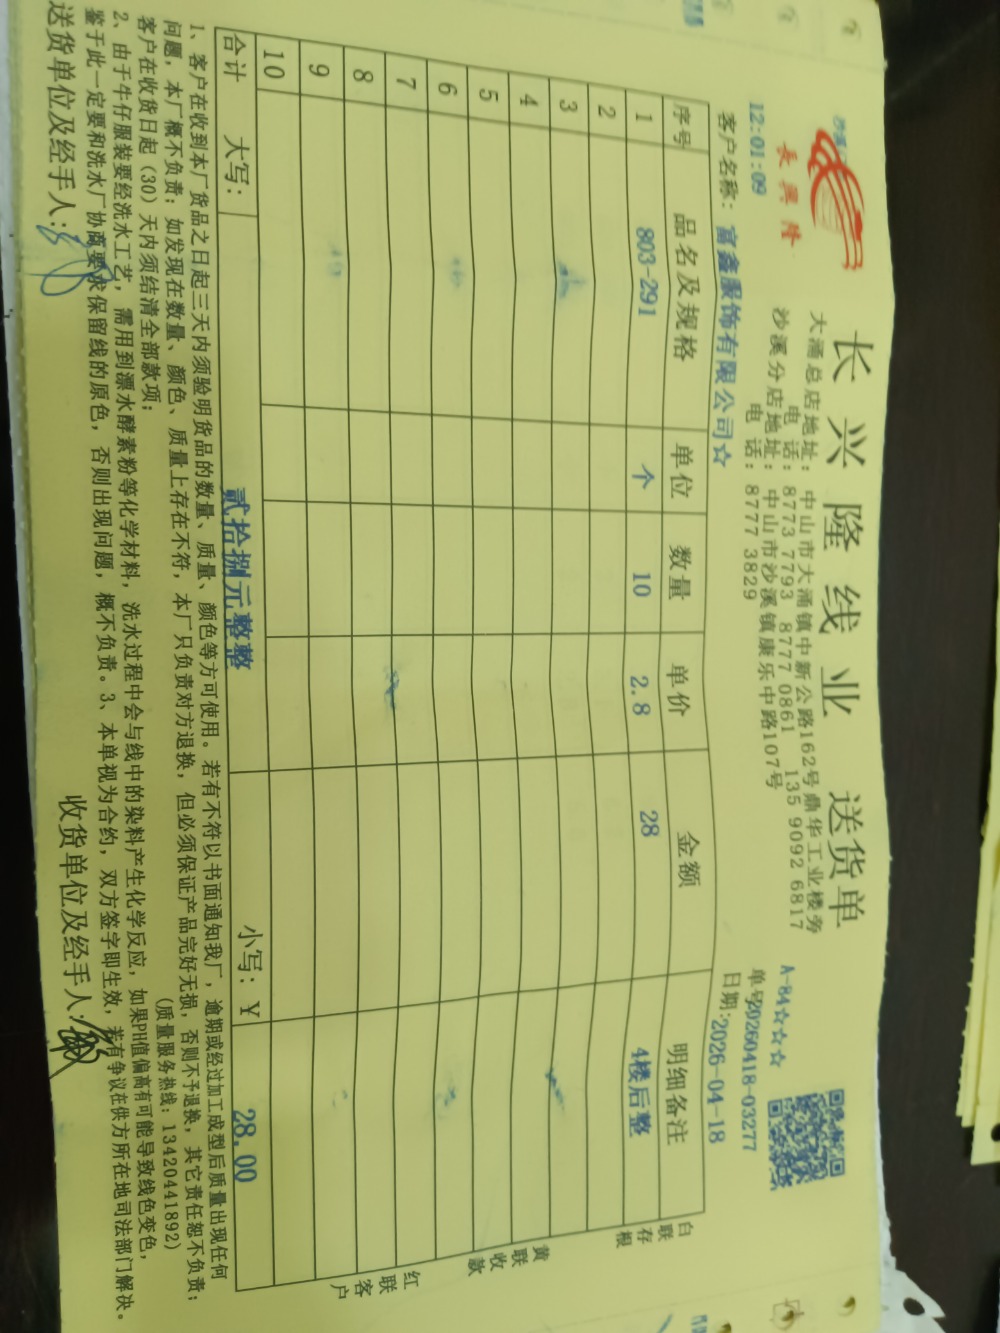 长兴隆线业 送货单
長興隆
大涌总店地址：中山市大涌镇中新公路162号鼎华工业楼旁
电 话：8773 7793 8777 0861 135 9092 6817
沙溪分店地址：中山市沙溪镇康乐中路107号
电 话：8777 3829
12:01:09
A-84☆☆☆
单号20260418-03277
客户名称：富鑫服饰有限公司☆
日期:2026-04-18
序号 品名及规格 单位 数量 单价 金额 明细备注
1 803-291 个 10 2.8 28 4楼后整
2
3
4
5
6
7
8
9
10
合计 大写： 贰拾捌元整整 小写：￥ 28.00
白联存根
黄联收款
红联客户
1、客户在收到本厂货品之日起三天内须验明货品的数量、质量、颜色等方可使用。若有不符以书面通知我厂，逾期或经过加工成型后质量出现任何
问题，本厂概不负责；如发现在数量、颜色、质量上存在不符，本厂只负责对方退换，但必须保证产品完好无损，否则不予退换，其它责任恕不负责；
客户在收货日起（30）天内须结清全部款项；
(质量服务热线：13420441892)
2、由于牛仔服装要经洗水工艺，需用到漂水酵素粉等化学材料，洗水过程中会与线中的染料产生化学反应，如果PH值偏高有可能导致线色变色，
鉴于此一定要和洗水厂协商要求保留线的原色，否则出现问题，概不负责。3、本单视为合约，双方签字即生效，若有争议在供方所在地司法部门解决。
送货单位及经手人: 收货单位及经手人: